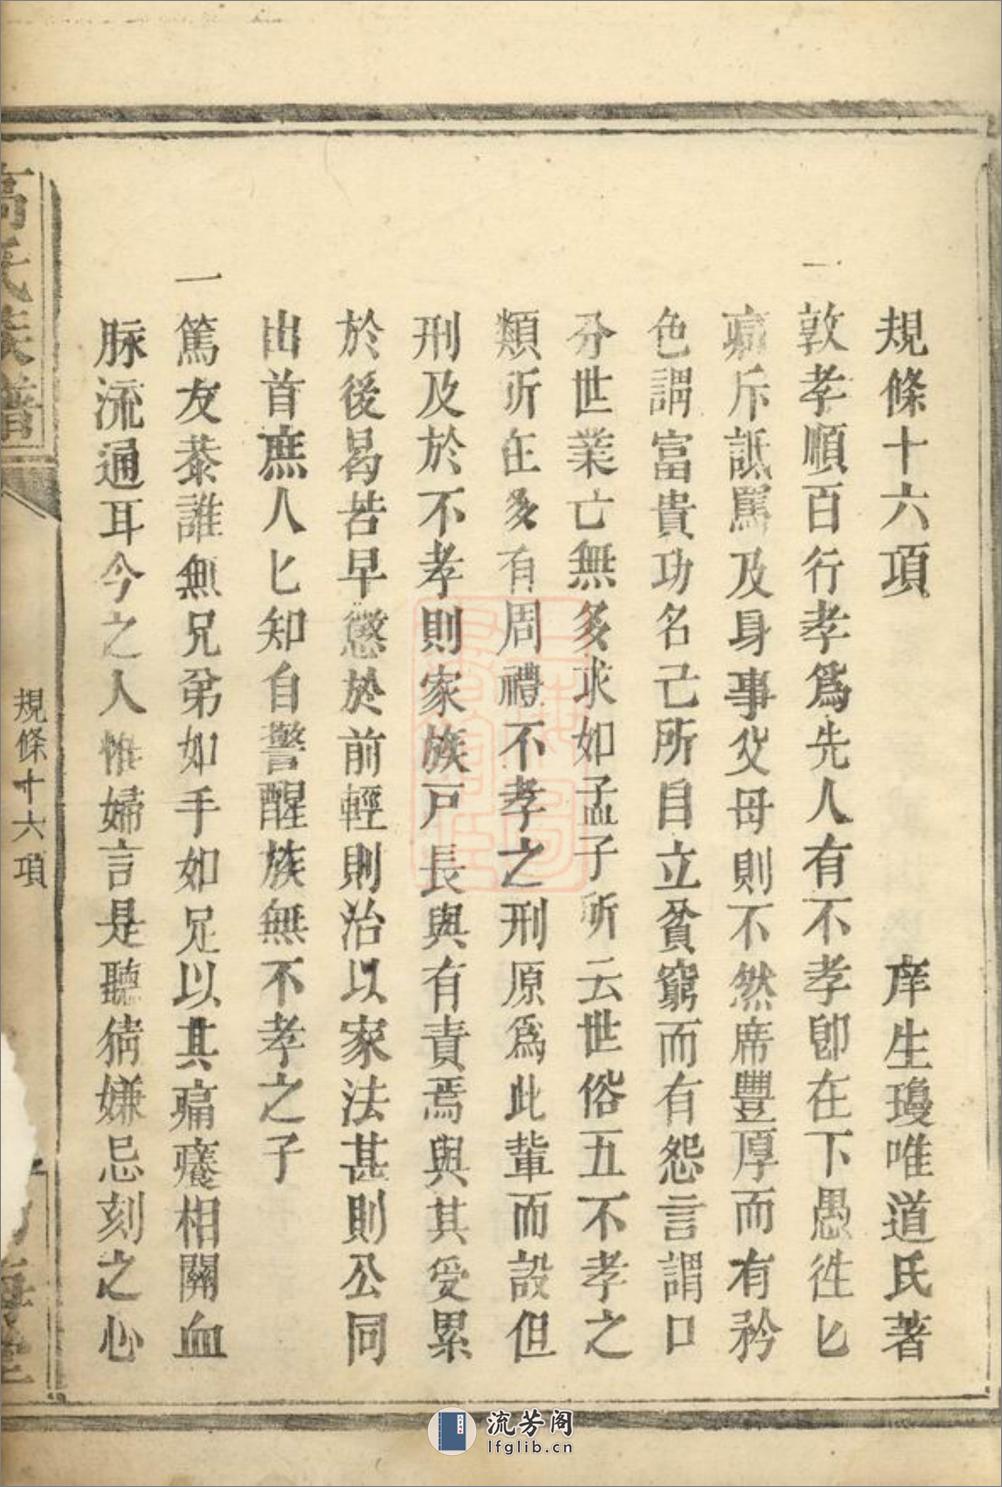 規條十六項 庠生瓊唯道氏著
一敦孝順百行孝爲先人有不孝卽在下愚徃匕
痛斥詆罵及身事父母則不然席豐厚而有矜
色謂富貴功名己所自立貧窮而有怨言謂口
分世業亡無多求如孟子所云世俗五不孝之
類所在多有周禮不孝之刑原爲此輩而設但
刑及於不孝則家族戸長與有責焉與其受累
於後曷若早懲於前輕則治以家法甚則公同
出首庶人匕知自警醒族無不孝之子
一篤友恭誰無兄弟如手如足以其痛癢相關血
脉流通耳今之人惟婦言是聽猜嫌忌刻之心
高氏族譜
規條十六項
堂
流芳阁
lfglib.cn